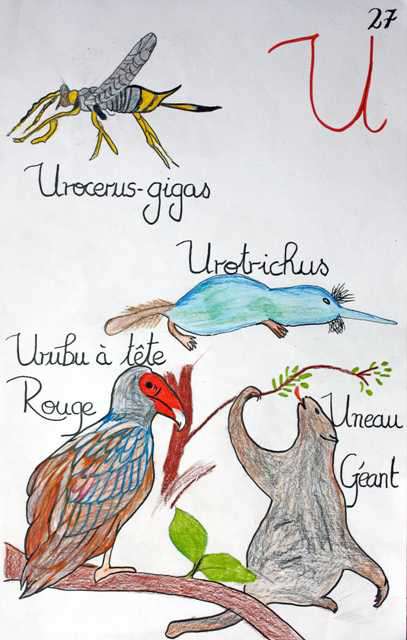 27
U
Urocerus-gigas
Urotrichus
Urubu à tête
Rouge
Uneau
Géant